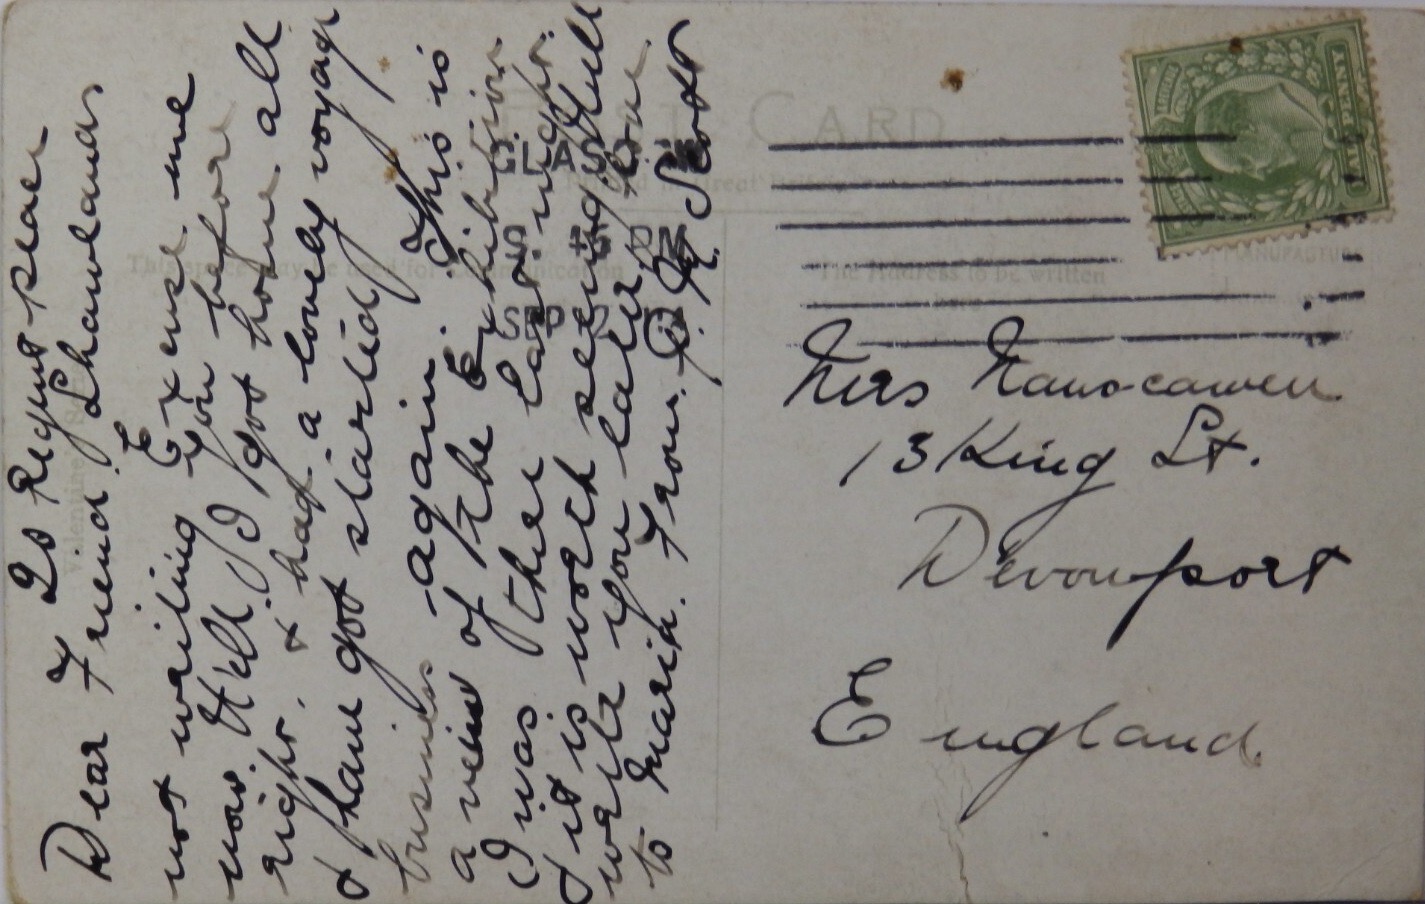 20 Regent place
Shawlands
Dear Friend. Excuse me
not writing you before
now. Well I got home all
right. & had a lovely voyage
& have got started
business again. This is
a view of the Exhibition
I was there last night.
& it is worth seeing. Will
write you later.
to Maria. From J. R. Scott
POST CARD
Printed in Great Britain
This space may be used for Communication
The Address to be written
here
MANUFACTURE
Valentine's Series
GLASGOW
5 45 PM
SEP
HALFPENNY
Mrs
13 King St.
Devonport
England.